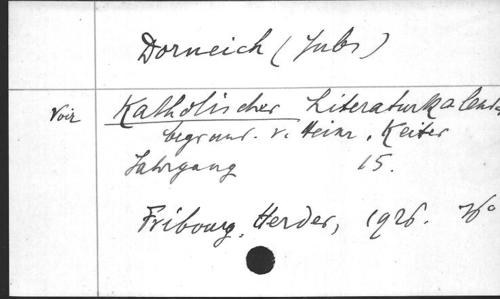 Dorneich (Jubs)
Voir Katholischer Literaturkalend
begrund. v. Heinr. Keiter
Jahrgang 15.
Fribourg, Herder, 1926.